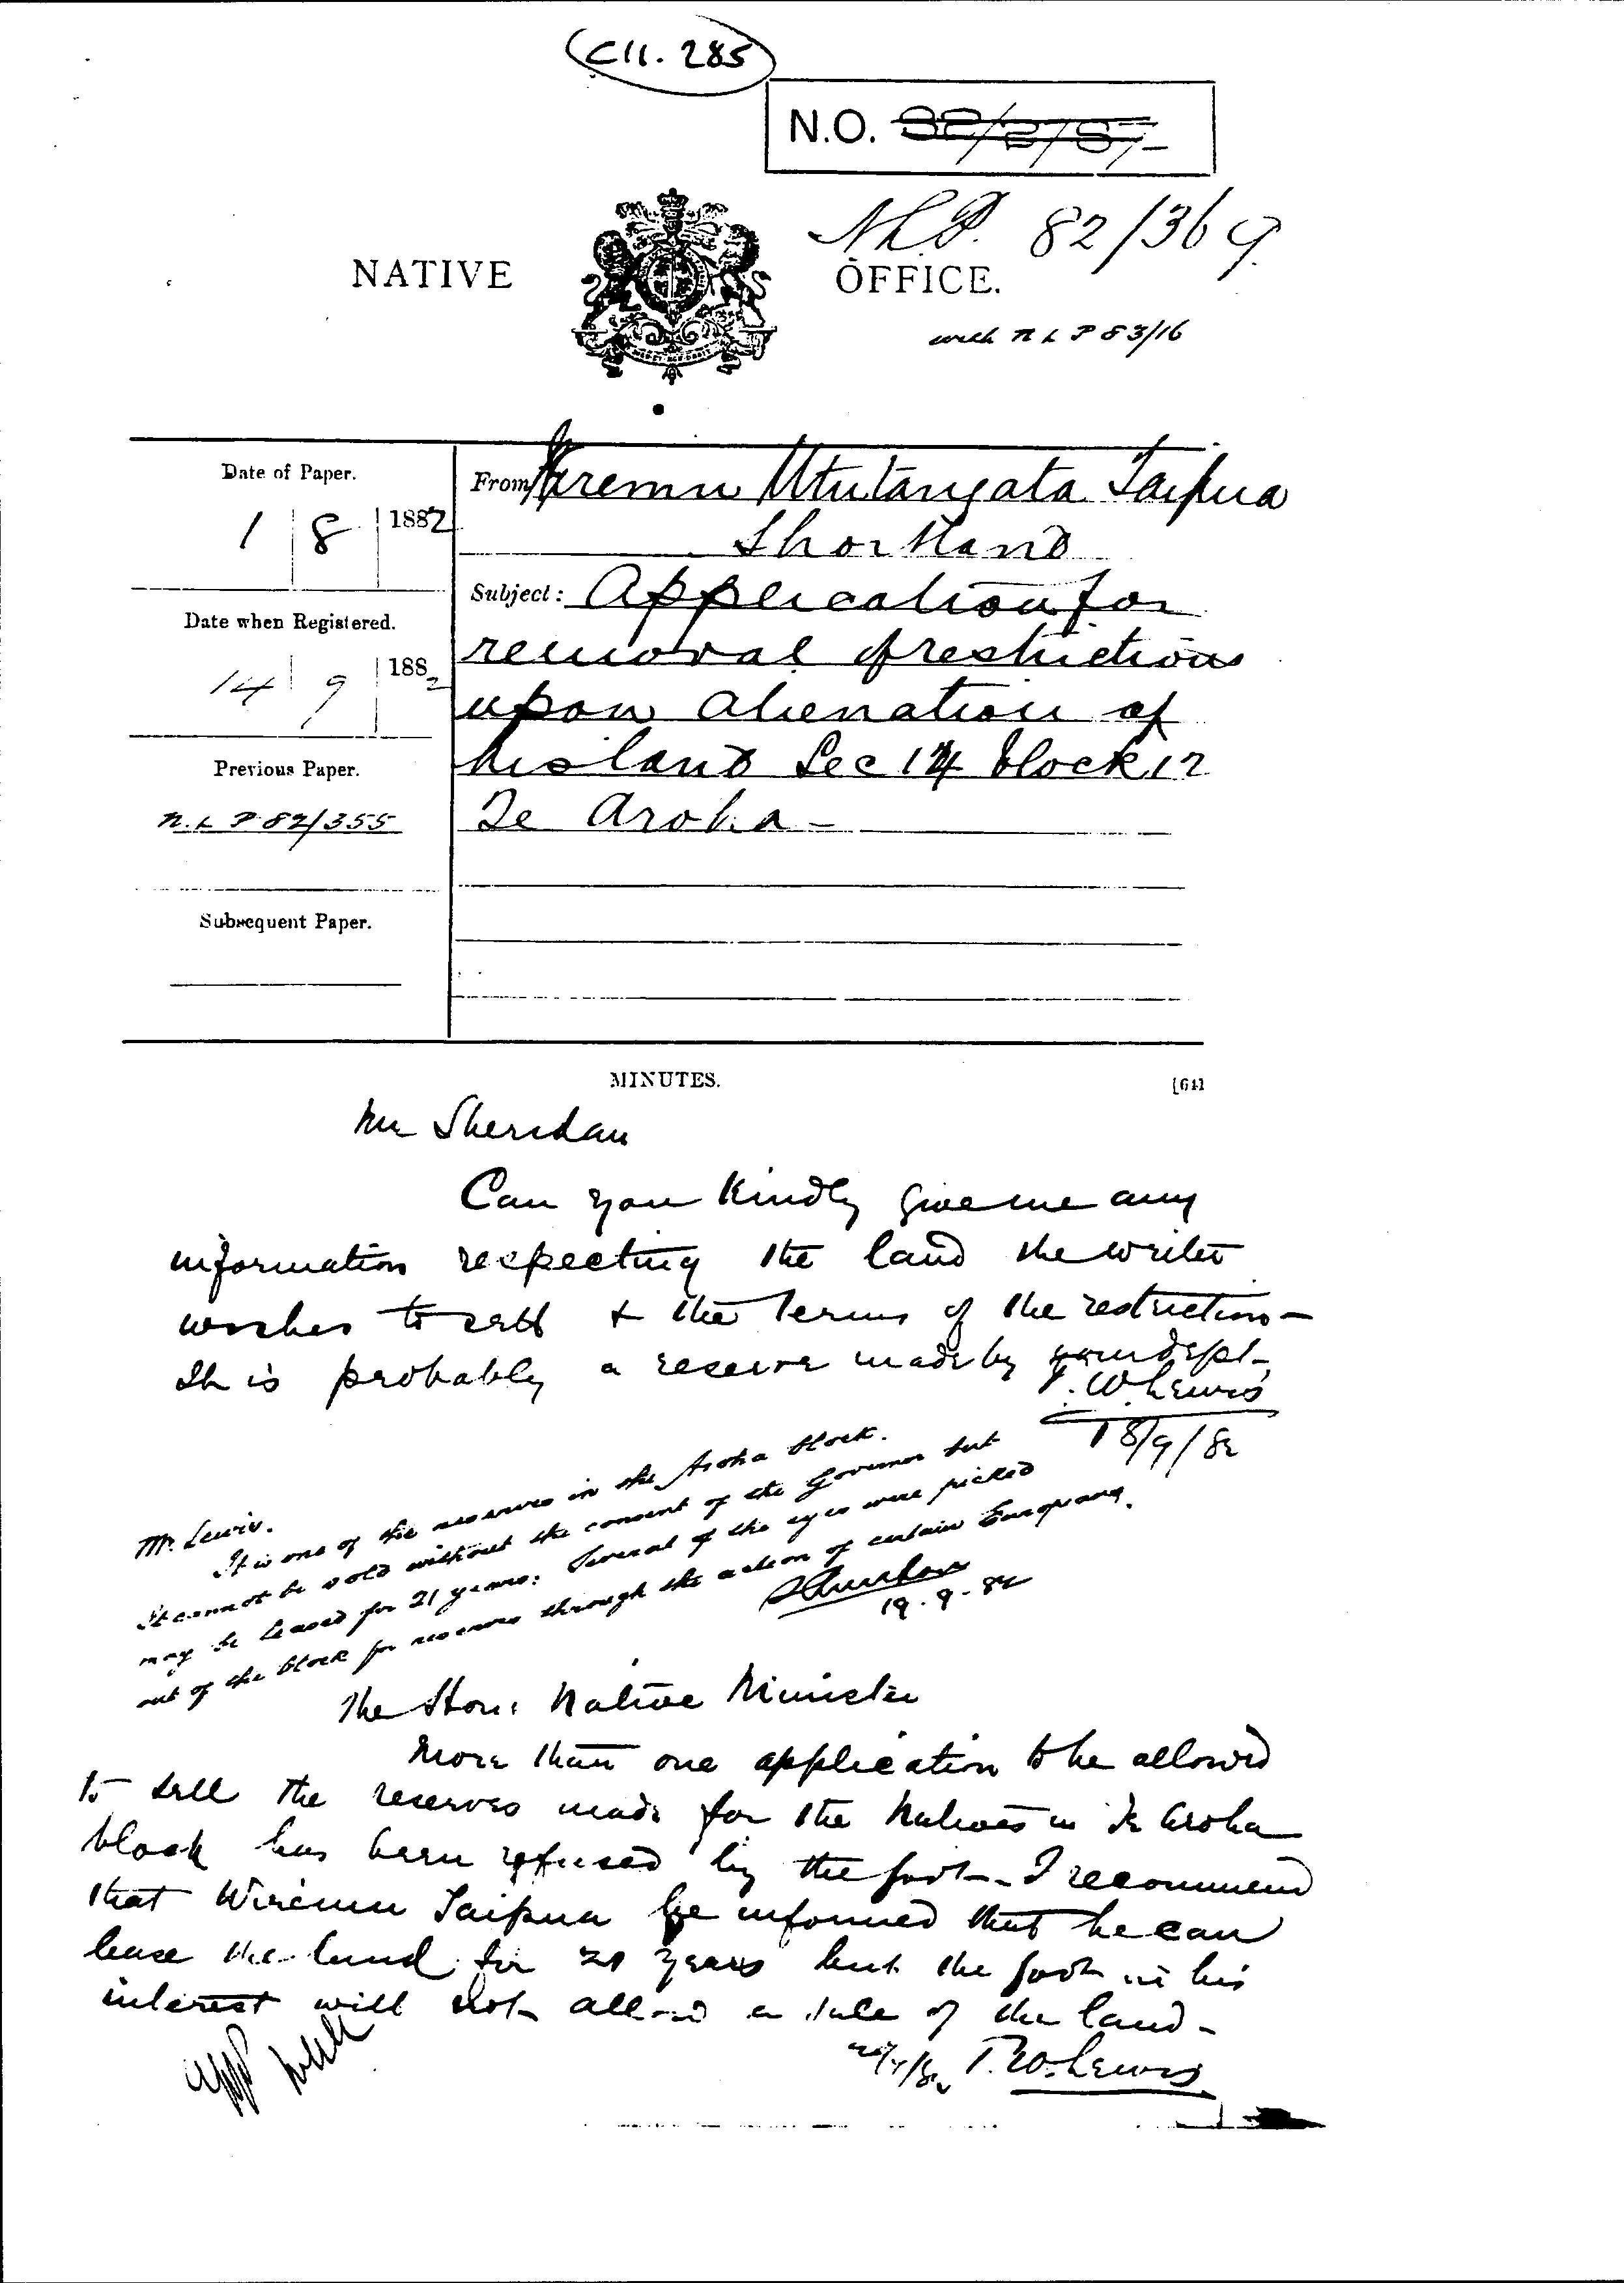 C11. 285
N.O. 82/2787
N L P. 82/369
NATIVE OFFICE.
with N L P 83/16
Date of Paper.
1 8 1882
From Wiremu Ututangata Taipua
Shortland
Subject: Application for
removal of restrictions
upon alienation of
his land Sec 14 block 12
Te Aroha -
Date when Registered.
14 9 1882
Previous Paper.
N. L P 82/355
Subsequent Paper.
MINUTES. [64]
Mr Sheridan
Can you kindly give me any
information respecting the land the writer
wishes to sell & the terms of the restriction -
It is probably a reserve made by your dept -
T. W. Lewis
18/9/82
Mr. Lewis.
It is one of the reserves in the Aroha block.
It cannot be sold without the consent of the Governor but
may be leased for 21 years: Several of the eyes were picked
out of the block for reserves through the action of certain Europeans.
19. 9. 82
The Hon. Native Minister
More than one application to be allowed
to sell the reserves made for the Natives in Te Aroha
block has been refused by the Govt - I recommend
that Wiremu Taipua be informed that he can
lease the land for 21 years but the Govt in his
interest will not allow a sale of the land -
T. W. Lewis